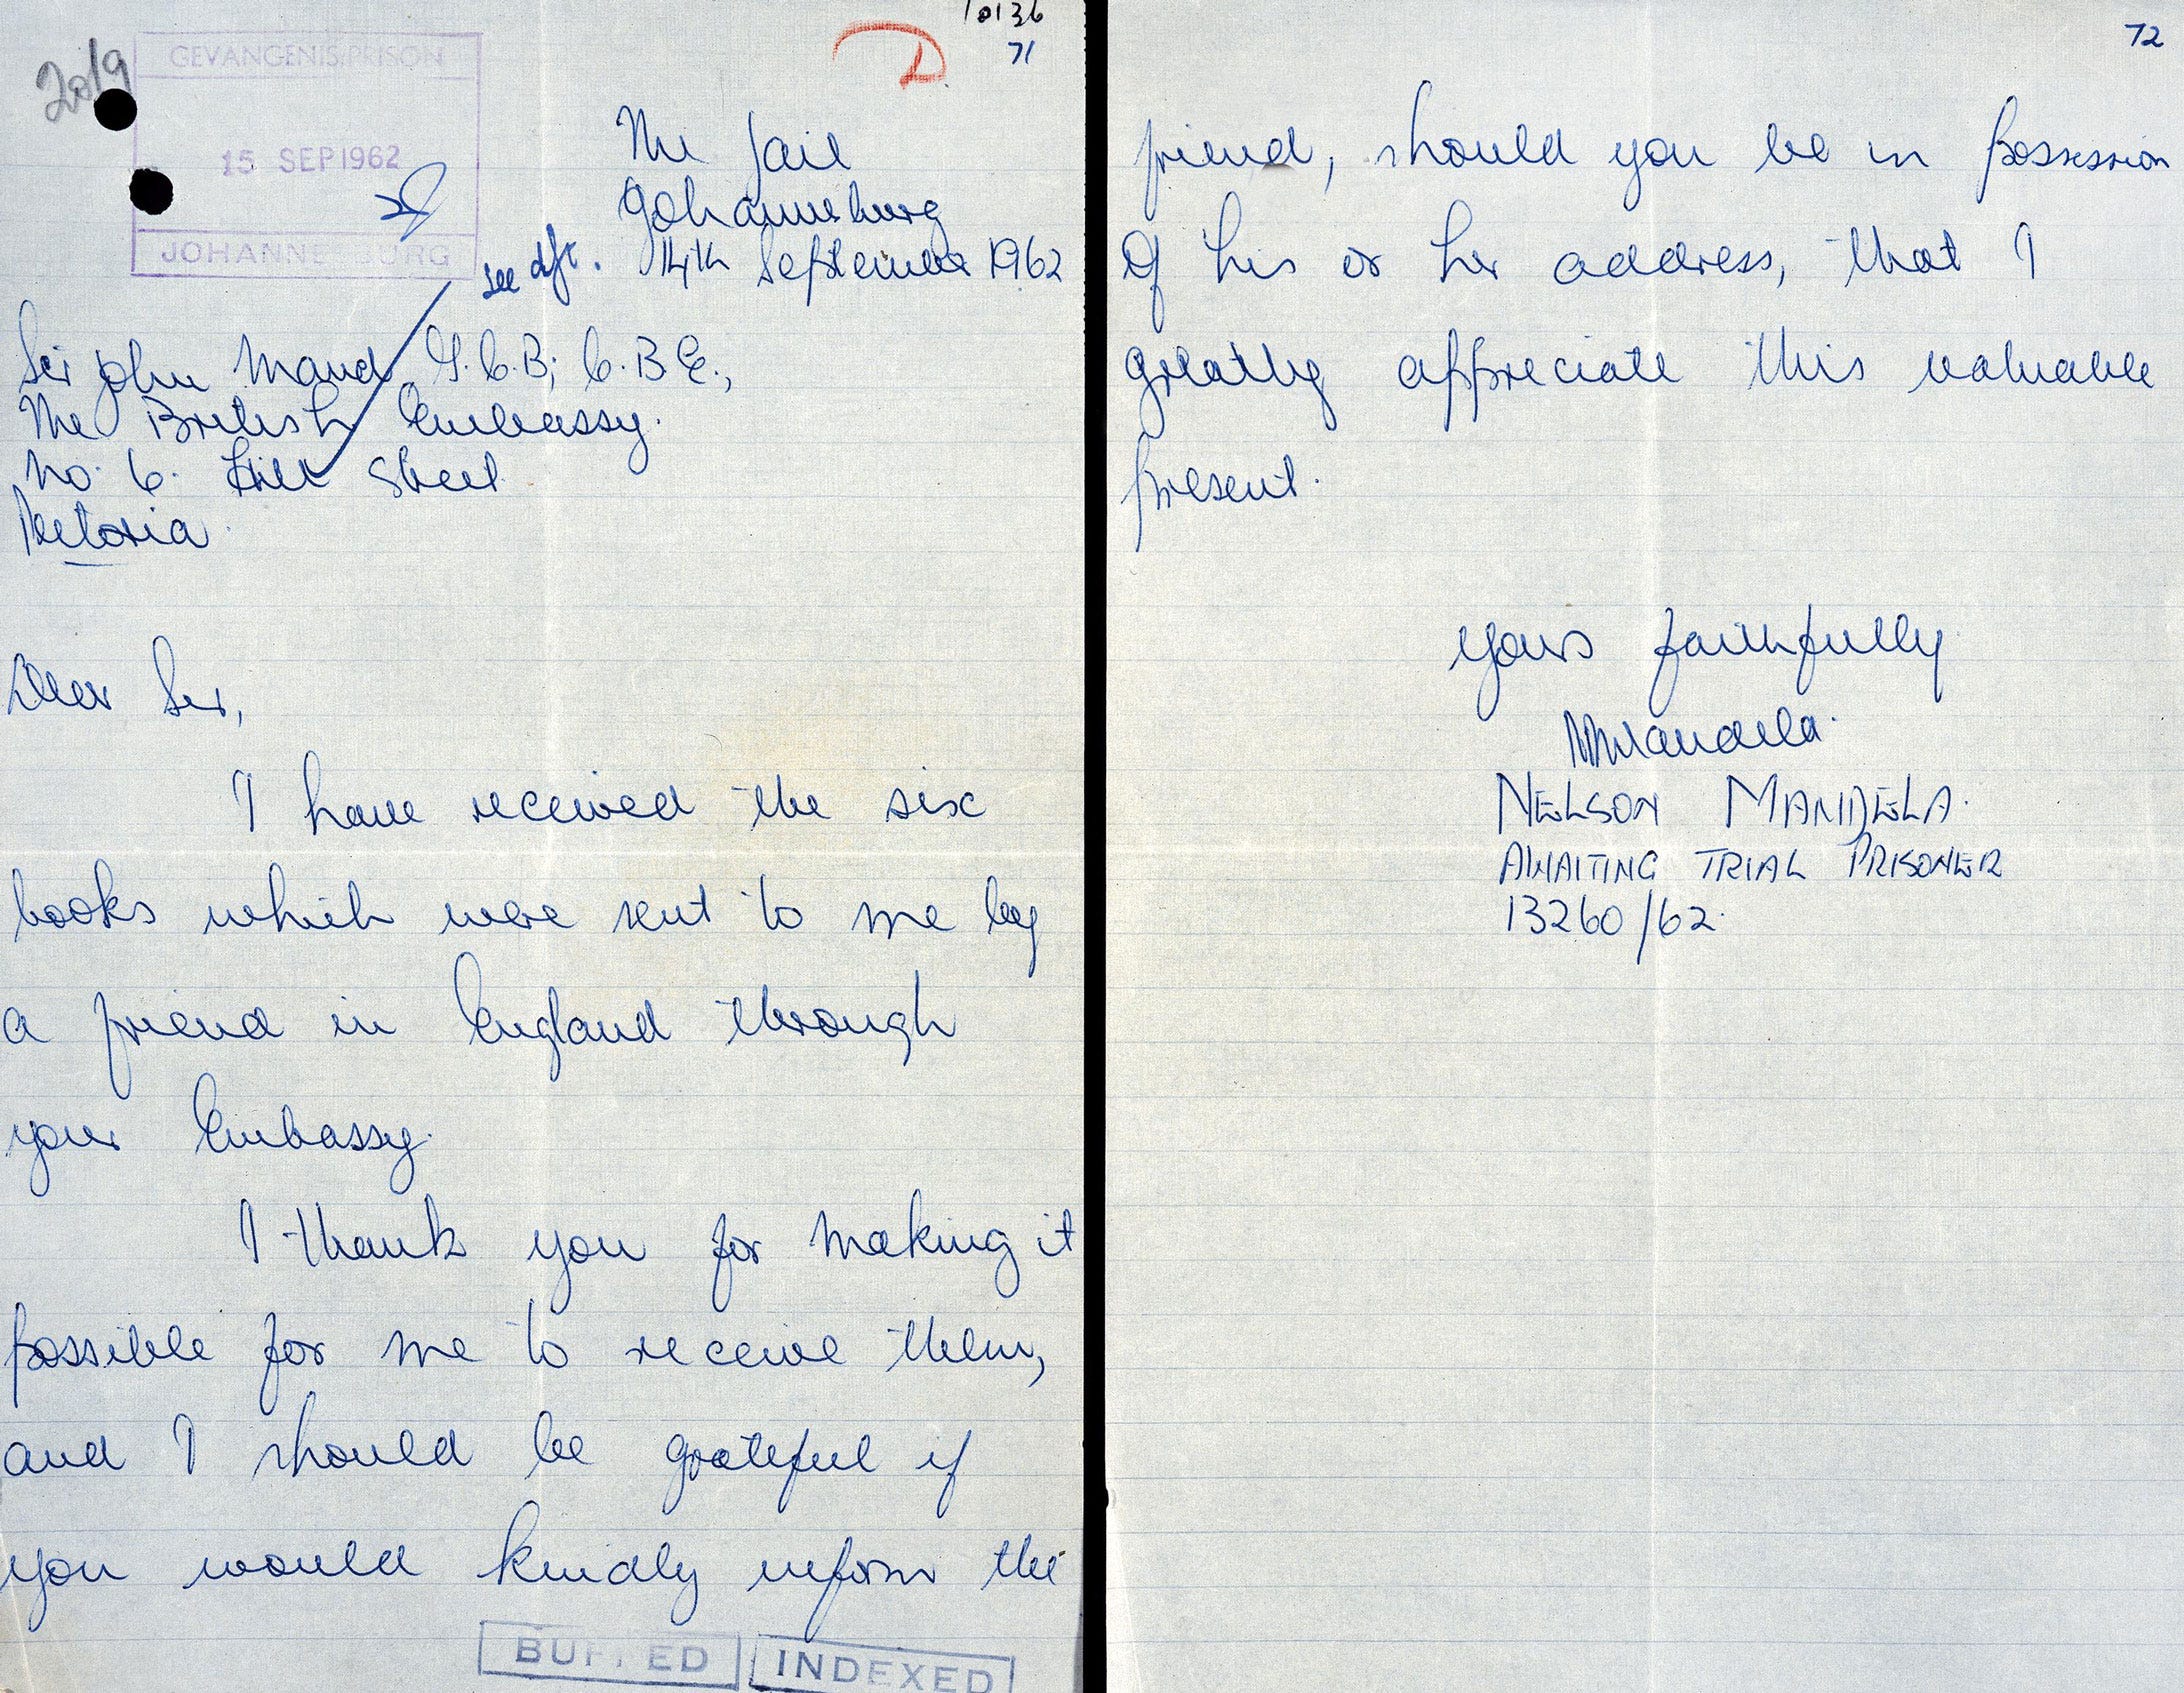 10136
71
2019
GEVANGENIS PRISON
15 SEP 1962
JOHANNE BURG
The Jail
Johannesburg
see dft. 14th September 1962
Sir John Maud G.C.B; C.B.E.,
The British Embassy.
No. 6. Hill Street
Pretoria.
Dear Sir,
I have received the six
books which were sent to me by
a friend in England through
your Embassy.
I thank you for making it
possible for me to receive them,
and I should be grateful if
you would kindly inform the
BUF ED INDEXED
72
friend, should you be in possession
of his or her address, that I
greatly appreciate this valuable
present.
Yours faithfully
NMandela.
NELSON MANDELA.
AWAITING TRIAL PRISONER
13260/62.